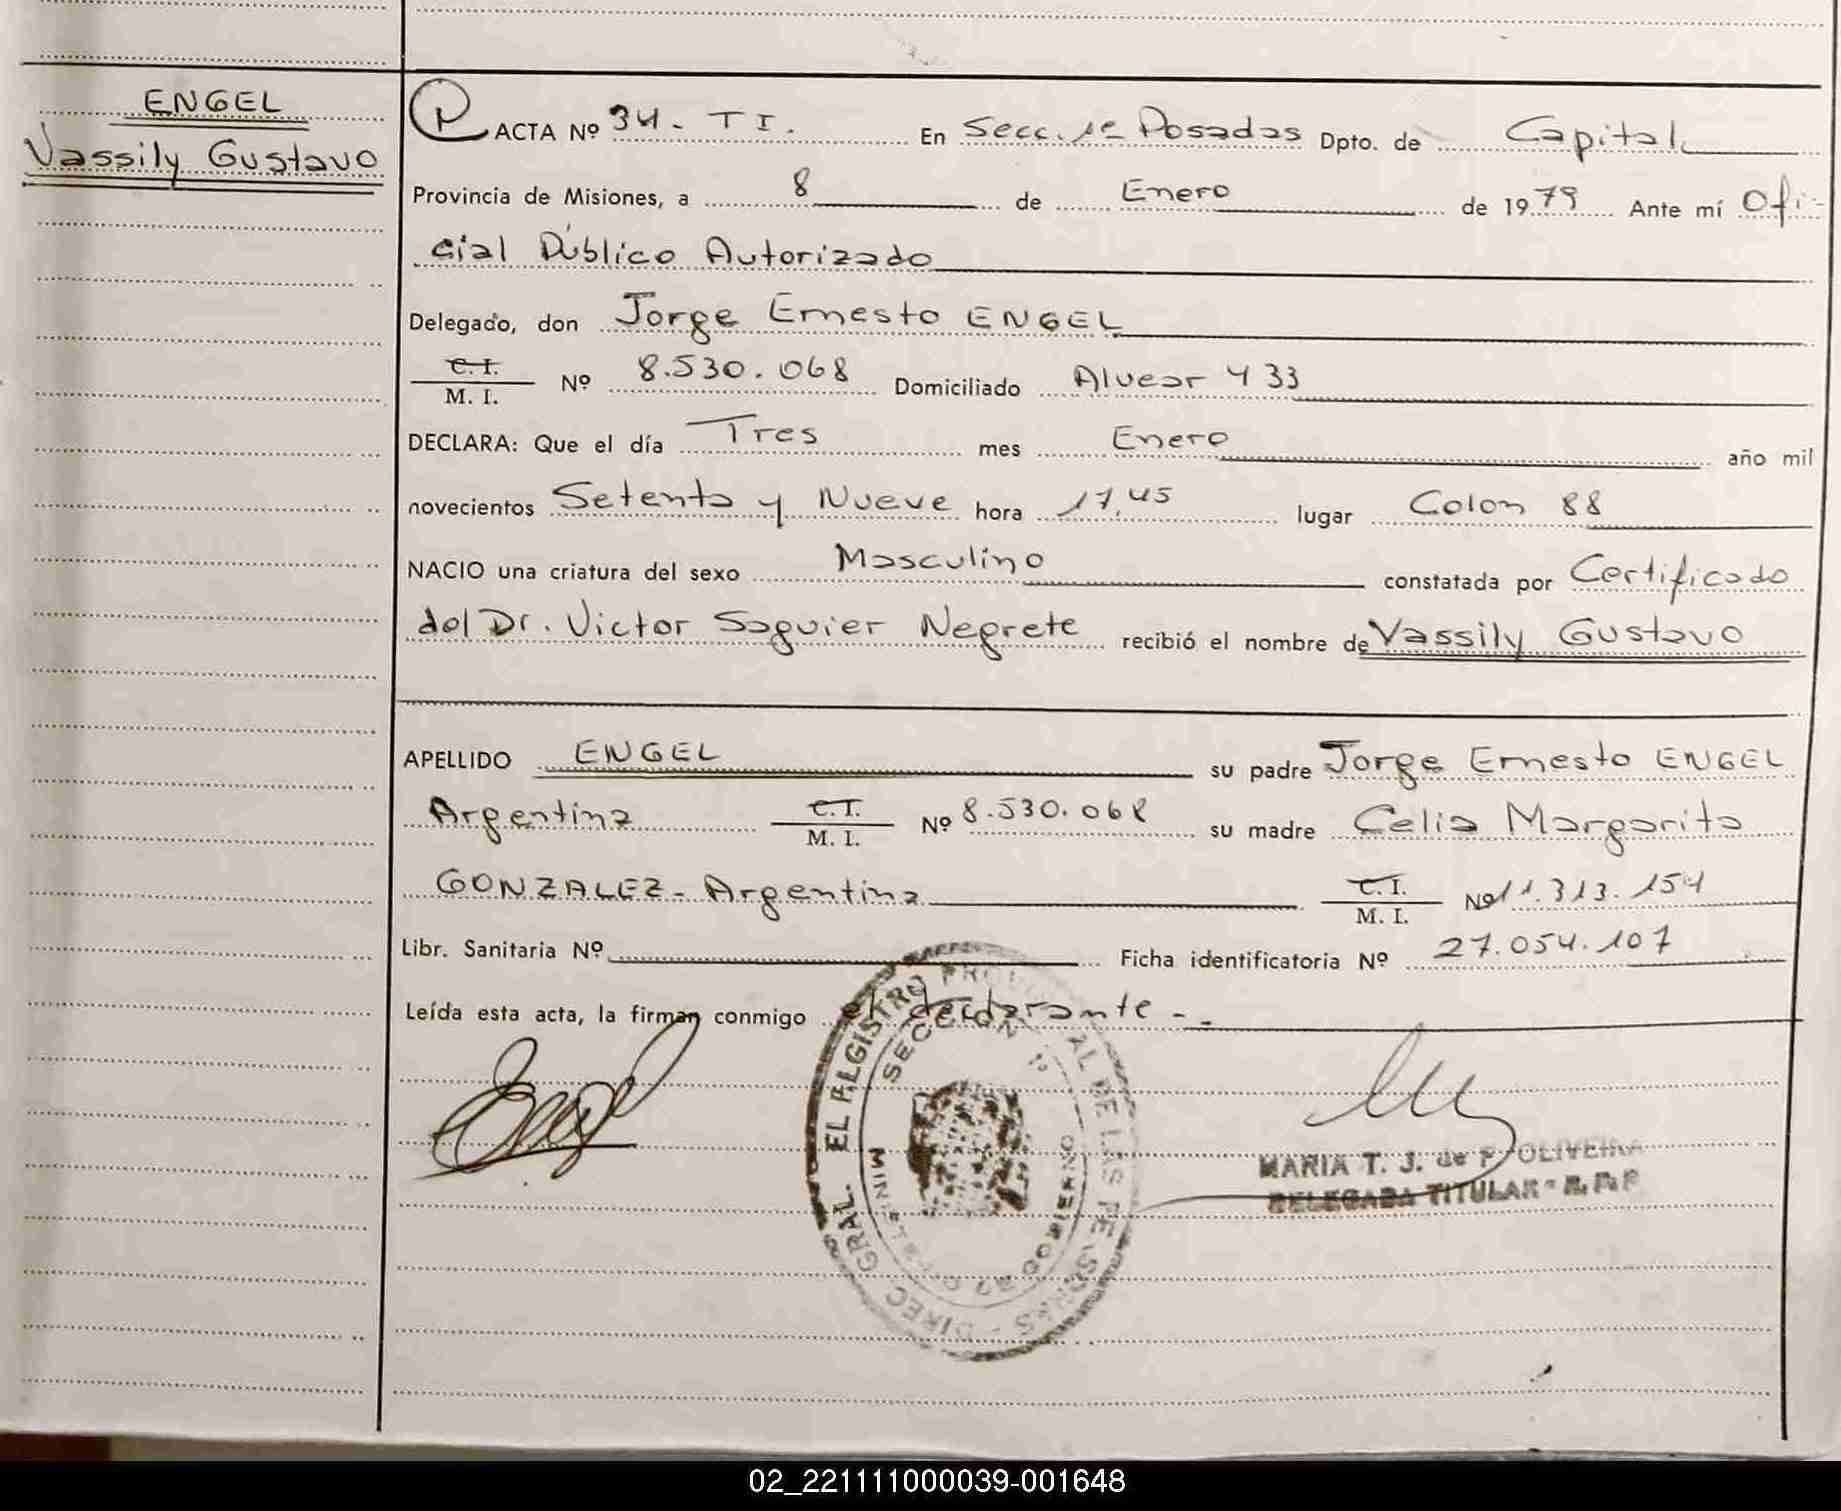 ENGEL
Vassily Gustavo
ACTA Nº 34 - T I. En Secc. 1ª Posadas Dpto. de Capital
Provincia de Misiones, a 8 de Enero de 1979 Ante mí Ofi-
cial Público Autorizado
Delegado, don Jorge Ernesto ENGEL
C. I.
M. I. Nº 8.530.068 Domiciliado Alvear 433
DECLARA: Que el día Tres mes Enero año mil
novecientos Setenta y Nueve hora 17,45 lugar Colon 88
NACIO una criatura del sexo Masculino constatada por Certificado
del Dr. Victor Saguier Negrete recibió el nombre de Vassily Gustavo
APELLIDO ENGEL su padre Jorge Ernesto ENGEL
Argentina C. I. M. I. Nº 8.530.068 su madre Celia Margarita
GONZALEZ - Argentina C. I. M. I. Nº 11.313.154
Libr. Sanitaria Nº Ficha identificatoria Nº 27.054.107
Leída esta acta, la firman conmigo el declarante - -
Engel
DIREC. GRAL. DEL REGISTRO PROVINCIAL DE LAS PERSONAS
SECCION 1º
GOBIERNO
MARIA T. J. de P. OLIVEIRA
DELEGADA TITULAR - R. P. P.
02_221111000039-001648